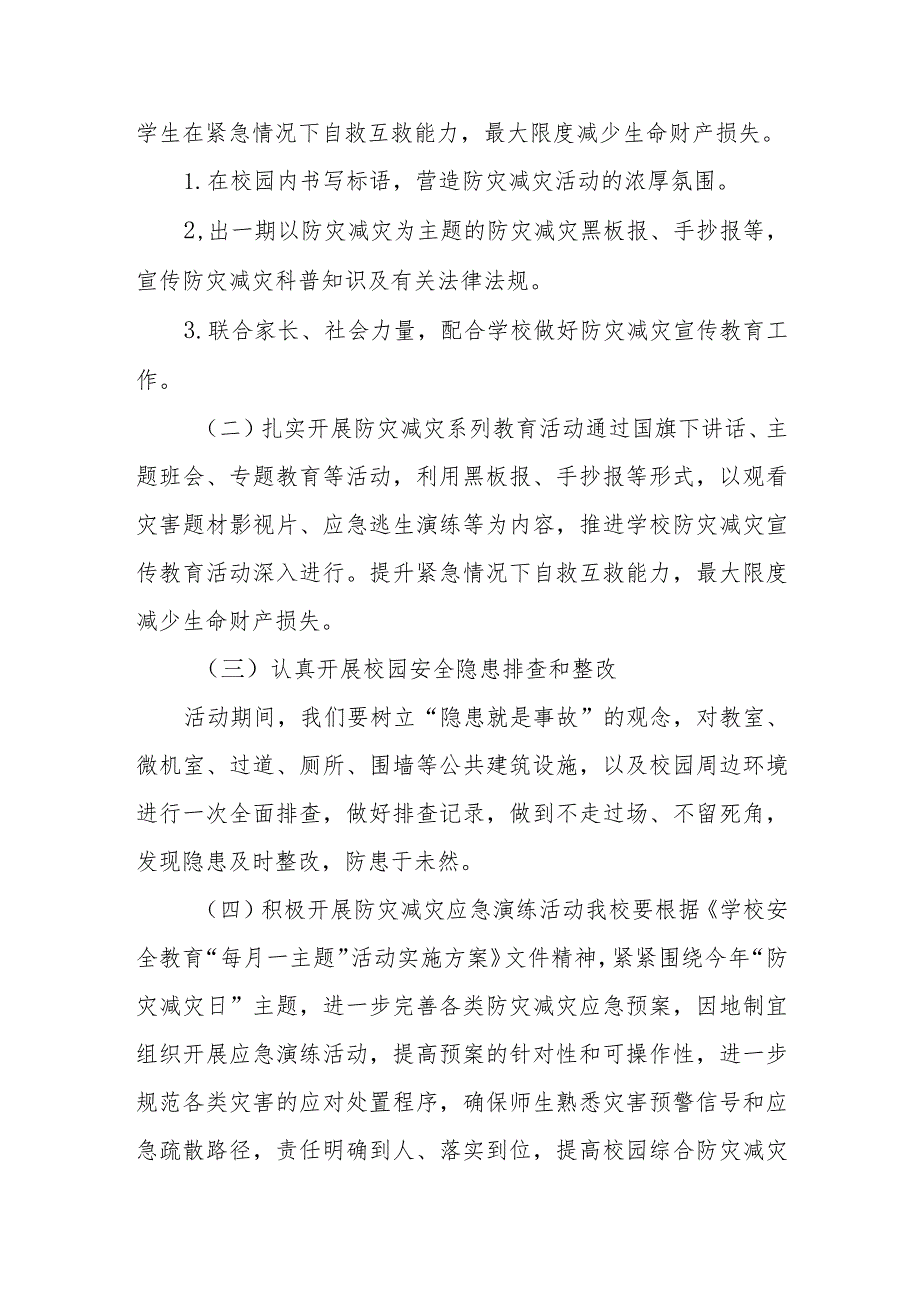 学生在紧急情况下自救互救能力，最大限度减少生命财产损失。
1.在校园内书写标语，营造防灾减灾活动的浓厚氛围。
2,出一期以防灾减灾为主题的防灾减灾黑板报、手抄报等，
宣传防灾减灾科普知识及有关法律法规。
3.联合家长、社会力量，配合学校做好防灾减灾宣传教育工
作。
（二）扎实开展防灾减灾系列教育活动通过国旗下讲话、主
题班会、专题教育等活动，利用黑板报、手抄报等形式，以观看
灾害题材影视片、应急逃生演练等为内容，推进学校防灾减灾宣
传教育活动深入进行。提升紧急情况下自救互救能力，最大限度
减少生命财产损失。
（三）认真开展校园安全隐患排查和整改
活动期间，我们要树立“隐患就是事故”的观念，对教室、
微机室、过道、厕所、围墙等公共建筑设施，以及校园周边环境
进行一次全面排查，做好排查记录，做到不走过场、不留死角，
发现隐患及时整改，防患于未然。
（四）积极开展防灾减灾应急演练活动我校要根据《学校安
全教育“每月一主题”活动实施方案》文件精神，紧紧围绕今年“防
灾减灾日”主题，进一步完善各类防灾减灾应急预案，因地制宜
组织开展应急演练活动，提高预案的针对性和可操作性，进一步
规范各类灾害的应对处置程序，确保师生熟悉灾害预警信号和应
急疏散路径，责任明确到人、落实到位，提高校园综合防灾减灾